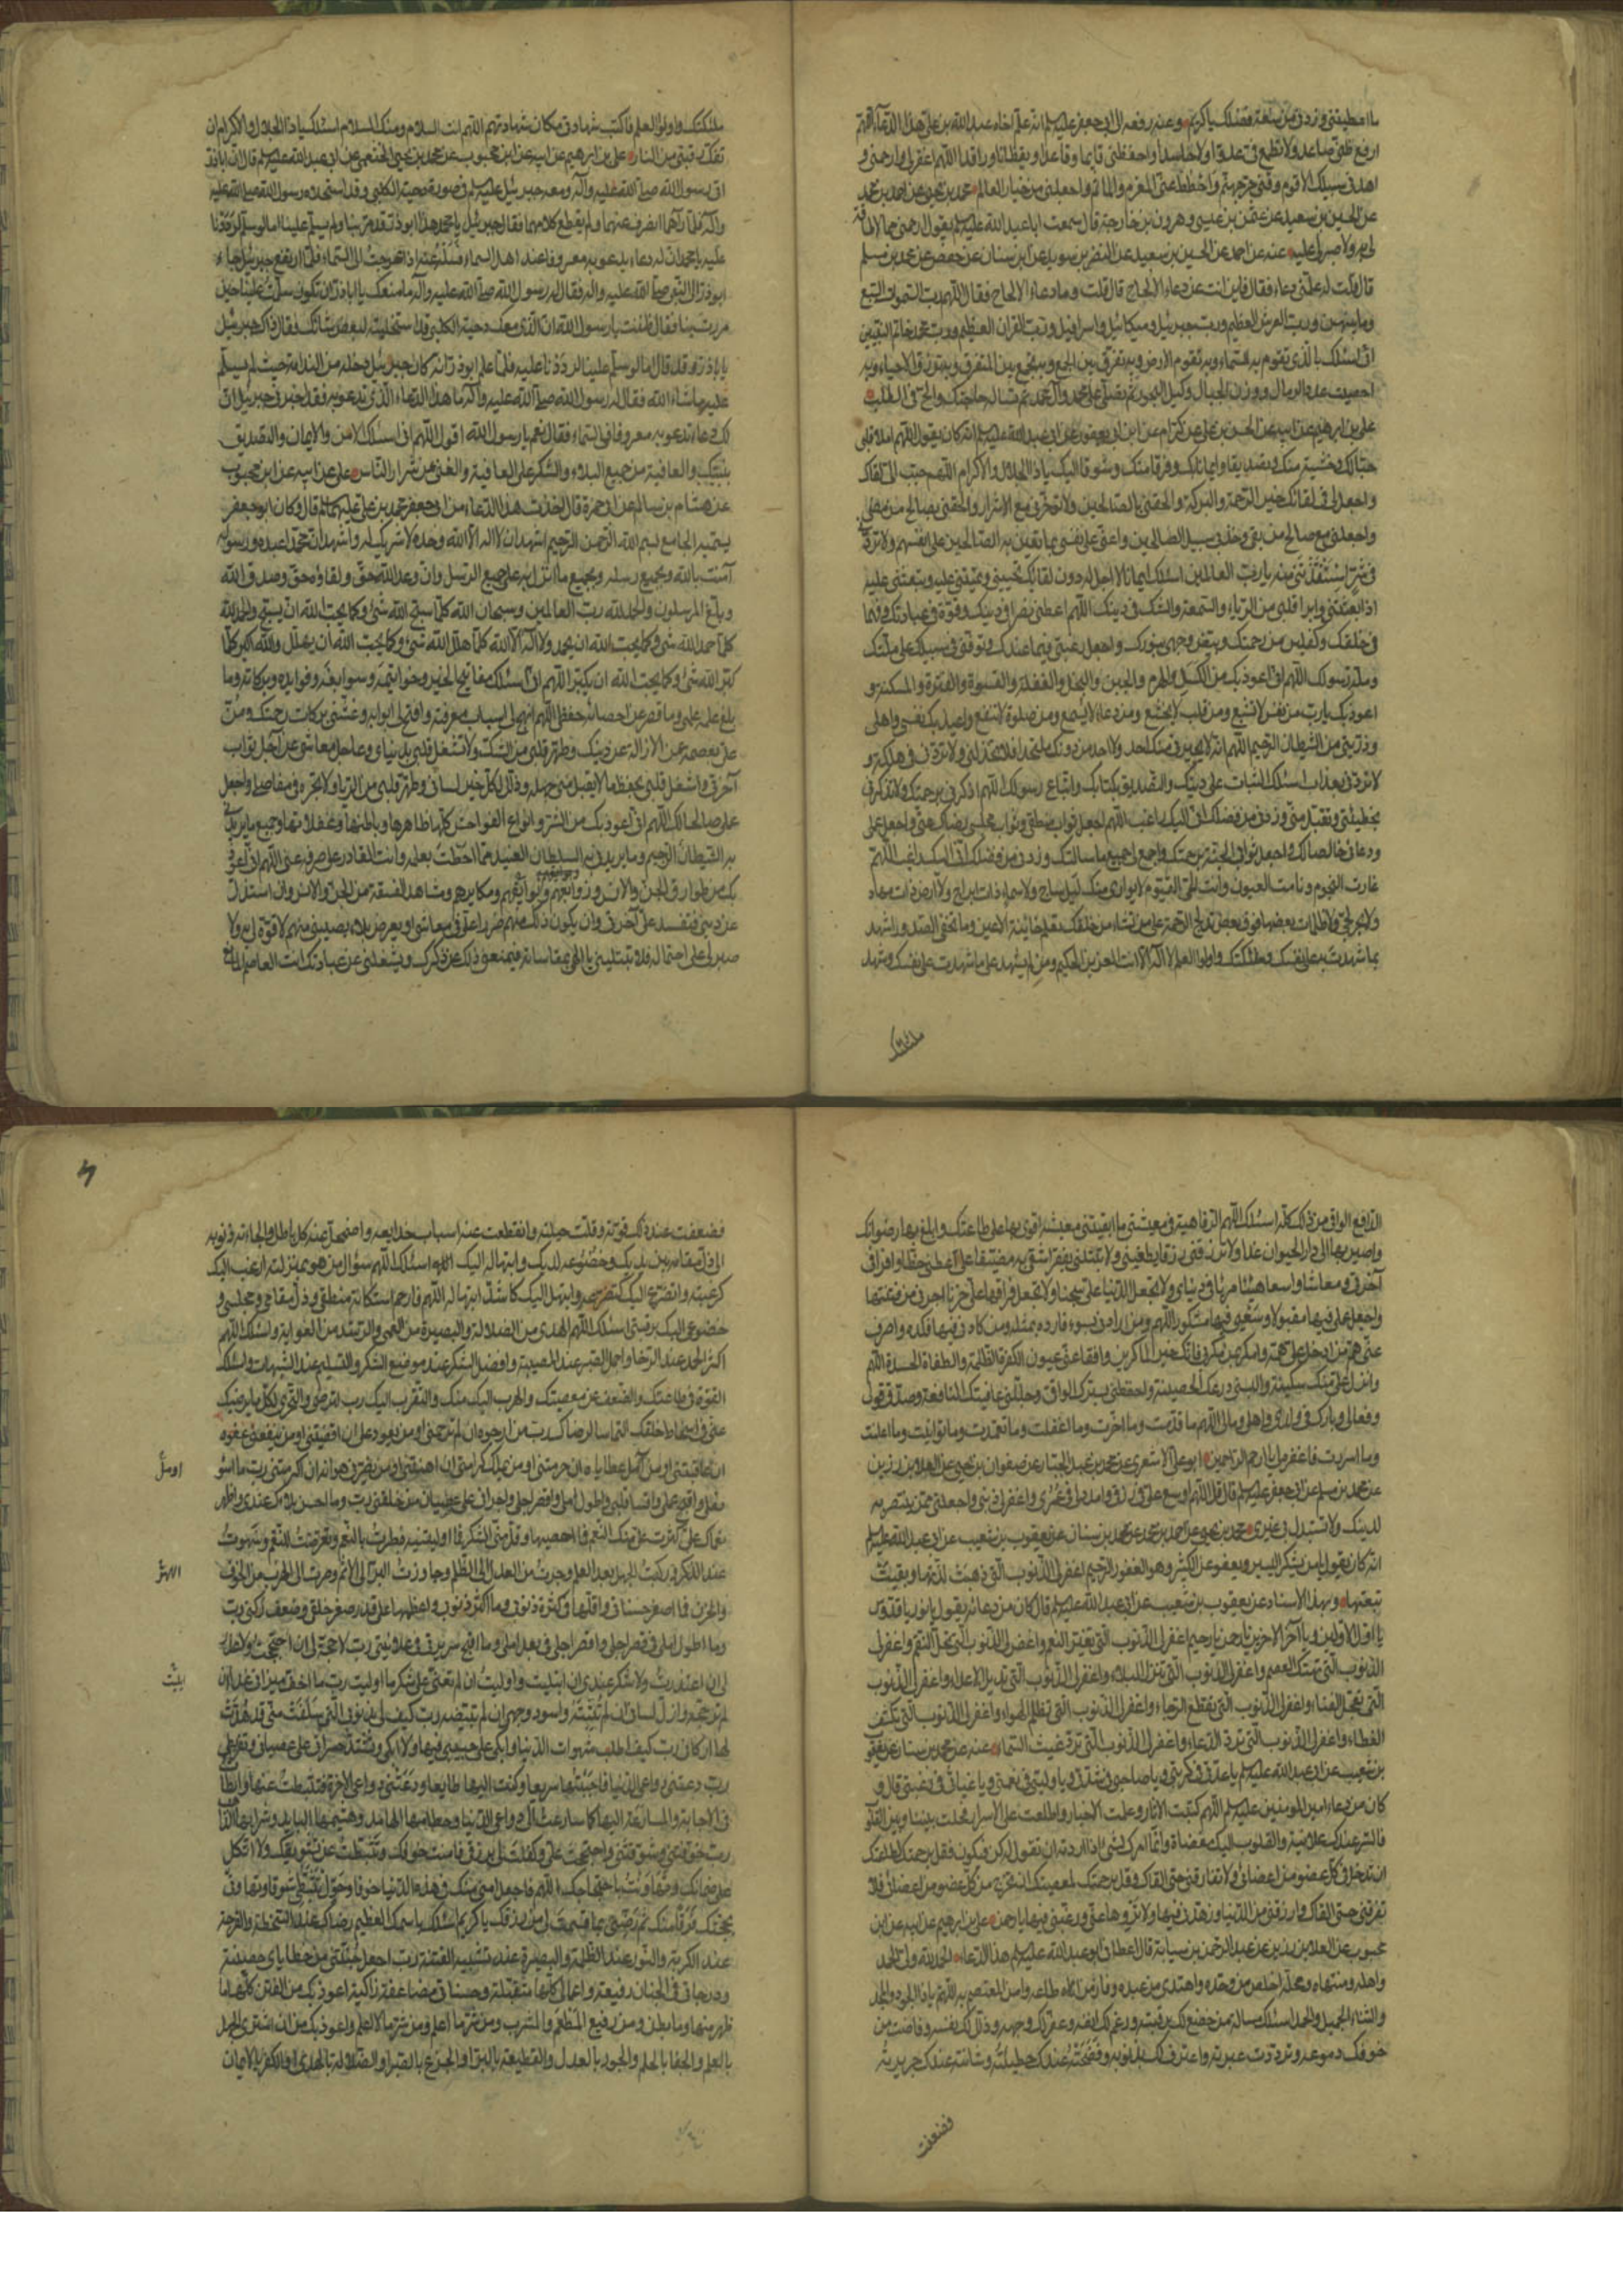 ما اعطيتني وزدني من سعة فضلك يا كريم وعنه رفعه الى ابي جعفر عليه السلم انه علم اخاه عبد الله بن علي هذا الدعاء اللهم
ارفع ظني صاعدا ولا تطمع في عدوا ولا حاسدا واحفظني قايما وقاعدا ويقظانا وراقدا اللهم اغفر لي وارحمني و
اهدني سبيلك الاقوم وقني حر جهنم واحطط عني المغرم والماثم واجعلني من خيار العالم محمد بن يحيى عن احمد بن محمد
عن الحسين بن سعيد عن عثمن بن عيسى وهرون بن خارجة قال سمعت ابا عبد الله عليه السلم يقول ارحمني مما لا طاقة
لي به ولا صبر لي عليه عنه عن احمد عن الحسين بن سعيد عن النضر بن سويد عن ابن سنان عن حفص عن محمد بن مسلم
قال قلت له علمني دعاء فقال فاين انت عن دعاء الالحاح قال قلت وما دعاء الالحاح فقال اللهم رب السموات السبع
وما بينهن ورب العرش العظيم ورب جبرئيل وميكائيل واسرافيل ورب القران العظيم ورب محمد خاتم النبيين
اني اسئلك بالذي تقوم به السماء وبه تقوم الارض وبه تفرق بين الجمع وبه تجمع بين المتفرق وبه ترزق الاحياء وبه
احصيت عدد الرمال ووزن الجبال وكيل البحور ثم تصلي على محمد وآل محمد ثم تساله حاجتك والح في الطلب
علي بن ابرهيم عن ابيه عن الحسن بن علي عن كرام عن ابن ابي يعفور عن ابي عبد الله عليه السلم انه كان يقول اللهم املا قلبي
حبا لك وخشية منك وتصديقا وايمانا بك وفرقا منك وشوقا اليك يا ذا الجلال والاكرام اللهم حبب الي لقاك
واجعل لي في لقائك خير الرحمة والبركة والحقني بالصالحين ولا تؤخرني مع الاشرار والحقني بصالح من مضى
واجعلني مع صالح من بقي وخذ بي سبيل الصالحين واعني على نفسي بما تعين به الصالحين على انفسهم ولا تردني
في شر استنقذتني منه يا رب العالمين اسئلك ايمانا لا اجل له دون لقائك تحييني وتميتني عليه وتبعثني عليه
اذا بعثتني وابرا قلبي من الرياء والسمعة والشك في دينك اللهم اعطني نصرا في دينك وقوة في عبادتك وفهما
في خلقك وكفلين من رحمتك وبيض وجهي بنورك واجعل رغبتي فيما عندك وتوفني في سبيلك على ملتك
وملة رسولك اللهم اني اعوذ بك من الكسل والهرم والجبن والبخل والغفلة والقسوة والفترة والمسكنة و
اعوذ بك يا رب من نفس لا تشبع ومن قلب لا يخشع ومن دعاء لا يسمع ومن صلوة لا تنفع واعيذ بك نفسي واهلي
وذريتي من الشيطان الرجيم اللهم انه لا يجيرني منك احد ولا اجد من دونك ملتحدا فلا تخذلني ولا تردني في هلكة و
لا تردني بعذاب اسئلك الثبات على دينك والتصديق بكتابك واتباع رسولك اللهم اذكرني برحمتك ولا تذكرني
بخطيئتي وتقبل مني وزدني من فضلك اني اليك راغب اللهم اجعل ثواب منطقي وثواب مجلسي رضاك عني واجعل عملي
ودعائي خالصا لك واجعل ثوابي الجنة برحمتك واجمع لي جميع ما سالتك وزدني من فضلك اني اليك راغب اللهم
غارت النجوم ونامت العيون وانت الحي القيوم لا يواري منك ليل ساج ولا سماء ذات ابراج ولا ارض ذات مهاد
ولا بحر لجي ولا ظلمات بعضها فوق بعض تدلج الرحمة على من تشاء من خلقك تعلم خائنة الاعين وما تخفي الصدور اشهد
بما شهدت به على نفسك وملئكتك واولوا العلم لا اله الا انت العزيز الحكيم ومن لم يشهد على ما شهدت على نفسك وشهد
ملئكتك
ملئكتك واولوا العلم فاكتب شهادتي مكان شهادتهم اللهم انت السلام ومنك السلام اسئلك يا ذا الجلال والاكرام ان
تفك رقبتي من النار علي بن ابرهيم عن ابيه عن ابن محبوب عن محمد بن يحيى الخثعمي عن ابي عبد الله عليه السلم قال ان ابا ذر
اتى رسول الله صلى الله عليه وآله ومعه جبرئيل عليه السلم في صورة دحية الكلبي وقد استخلاه رسول الله صلى الله عليه
وآله فلما رآهما انصرف عنهما ولم يقطع كلامهما فقال جبرئيل يا محمد هذا ابو ذر قد مر بنا ولم يسلم علينا اما لو سلم لرددنا
عليه يا محمد ان له دعاء يدعو به معروفا عند اهل السماء فسله عنه اذا عرجت الى السماء فلما ارتفع جبرئيل جاء
ابو ذر الى النبي صلى الله عليه واله فقال له رسول الله صلى الله عليه وآله ما منعك يا ابا ذر ان تكون سلمت علينا حين
مررت بنا فقال ظننت يا رسول الله ان الذي معك دحية الكلبي قد استخليته لبعض شانك فقال ذاك جبرئيل
يا با ذر وقد قال اما لو سلم علينا لرددنا عليه فلما علم ابو ذر انه كان جبرئيل دخله من الندامة حيث لم يسلم
عليه ما شاء الله فقال له رسول الله صلى الله عليه وآله ما هذا الدعاء الذي تدعو به فقد خبرني جبرئيل ان
لك دعاء تدعو به معروفا في السماء فقال نعم يا رسول الله اقول اللهم اني اسئلك الامن والايمان والتصديق
بنبيك والعافية من جميع البلاء والشكر على العافية والغنى من شرار الناس علي عن ابيه عن ابن محبوب
عن هشام بن سالم عن ابي حمزة قال اخذت هذا الدعاء من ابي جعفر محمد بن علي عليهما السلم قال وكان ابو جعفر
يسميه الجامع بسم الله الرحمن الرحيم اشهد ان لا اله الا الله وحده لا شريك له واشهد ان محمدا عبده ورسوله
آمنت بالله وبجميع رسله وبجميع ما انزل به على جميع الرسل وان وعد الله حق ولقاؤه حق وصدق الله
وبلغ المرسلون والحمد لله رب العالمين وسبحان الله كلما سبح الله شئ وكما يحب الله ان يسبح والحمد لله
كلما حمد الله شئ وكما يحب الله ان يحمد ولا اله الا الله كلما هلل الله شئ وكما يحب الله ان يهلل والله اكبر كلما
كبر الله شئ وكما يحب الله ان يكبر اللهم اني اسئلك مفاتيح الخير وخواتيمه وسوابغه وفوايده وبركاته وما
بلغ علمه علمي وما قصر عن احصائه حفظي اللهم انهج لي اسباب معرفته وافتح لي ابوابه وغشني بركات رحمتك ومن
علي بعصمة عن الازالة عن دينك وطهر قلبي من الشك ولا تشغل قلبي بدنياي وعاجل معاشي عن آجل ثواب
آخرتي واشغل قلبي بحفظ ما لا يقبل مني جهله وذلل لكل خير لساني وطهر قلبي من الريا ولا تجره في مفاصلي واجعل
عملي خالصا لك اللهم اني اعوذ بك من الشر وانواع الفواحش كلها ظاهرها وباطنها وغفلاتها وجميع ما يريدني
به الشيطان الرجيم وما يريدني به السلطان العنيد مما احطت بعلمه وانت القادر على صرفه عني اللهم اني اعوذ
بك من طوارق الجن والانس وزوابعهم وبوايقهم ومكايدهم ومشاهد الفسقة من الجن والانس وان استزل
عن ديني فتفسد علي آخرتي وان يكون ذلك منهم ضررا علي في معاشي او يعرض بلاء يصيبني منهم لا قوة لي به ولا
صبر لي على احتماله فلا تبتليني يا الهي بمقاساته فيمنعني ذلك عن ذكرك ويشغلني عن عبادتك انت العاصم المانع
الدافع الواقي من ذلك كله اسئلك اللهم الرفاهية في معيشتي ما ابقيتني معيشة اقوى بها على طاعتك وابلغ بها رضوانك
واصير بها الى دار الحيوان غدا ولا ترزقني رزقا يطغيني ولا تبتلني بفقر اشقى به مضيقا علي اعطني حظا وافرا في
آخرتي ومعاشا واسعا هنيئا مريا في دنياي ولا تجعل الدنيا علي سجنا ولا تجعل فراقها علي حزنا اجرني من فتنتها
واجعل عملي فيها مقبولا وسعيي فيها مشكورا اللهم ومن ارادني بسوء فارده بمثله ومن كادني فيها فكده واصرف
عني هم من ادخل علي همه وامكر بمن مكر بي فانك خير الماكرين وافقا عني عيون الكفرة الظلمة والطغاة الحسدة اللهم
وانزل علي منك سكينة والبسني درعك الحصينة واحفظني بسترك الواقي وجللني عافيتك النافعة وصدق قولي
وفعالي وبارك لي في ولدي واهلي ومالي اللهم ما قدمت وما اخرت وما اغفلت وما تعمدت وما توانيت وما اعلنت
وما اسررت فاغفر لي يا ارحم الراحمين ابو علي الاشعري عن محمد بن عبد الجبار عن صفوان بن يحيى عن العلاء بن رزين
عن محمد بن مسلم عن ابي جعفر عليه السلم قال قل اللهم اوسع علي في رزقي وامدد لي في عمري واغفر لي ذنبي واجعلني ممن تنتصر به
لدينك ولا تستبدل بي غيري محمد بن يحيى عن احمد بن محمد عن محمد بن سنان عن يعقوب بن شعيب عن ابي عبد الله عليه السلم
انه كان يقول يا من يشكر اليسير ويعفو عن الكثير وهو الغفور الرحيم اغفر لي الذنوب التي ذهبت لذتها وبقيت
تبعتها وبهذا الاسناد عن يعقوب بن شعيب عن ابي عبد الله عليه السلم قال كان من دعائه يقول يا نور يا قدوس
يا اول الاولين ويا آخر الاخرين يا رحمن يا رحيم اغفر لي الذنوب التي تغير النعم واغفر لي الذنوب التي تحل النقم واغفر لي
الذنوب التي تهتك العصم واغفر لي الذنوب التي تنزل البلاء واغفر لي الذنوب التي تديل الاعداء واغفر لي الذنوب
التي تعجل الفناء واغفر لي الذنوب التي تقطع الرجاء واغفر لي الذنوب التي تظلم الهواء واغفر لي الذنوب التي تكشف
الغطاء واغفر لي الذنوب التي ترد الدعاء واغفر لي الذنوب التي ترد غيث السماء عنه عن محمد بن سنان عن يعقوب
بن شعيب عن ابي عبد الله عليه السلم يا عدتي في كربتي ويا صاحبي في شدتي ويا وليي في نعمتي ويا غياثي في رغبتي قال و
كان من دعاء امير المؤمنين عليه السلم اللهم كتبت الاثار وعلمت الاخبار واطلعت على الاسرار فحلت بيننا وبين القلوب
فالسر عندك علانية والقلوب اليك مفضاة وانما امرك لشئ اذا اردته ان تقول له كن فيكون فقل برحمتك لطاعتك
ان تدخل في كل عضو من اعضائي ولا تفارقني حتى القاك وقل برحمتك لمعصيتك ان تخرج من كل عضو من اعضائي فلا
تقربني حتى القاك وارزقني من الدنيا وزهدني فيها ولا تزوها عني ورغبتي فيها يا رحمن علي بن ابرهيم عن ابيه عن ابن
محبوب عن العلاء بن رزين عن عبد الرحمن بن سيابة قال اعطاني ابو عبد الله عليه السلم هذا الدعاء الحمد لله ولي الحمد
واهله ومنتهاه ومحله اخلص من وحده واهتدى من عبده وفاز من اطاعه وامن المعتصم به اللهم يا ذا الجود والمجد
والثناء الجميل والحمد اسئلك مسالة من خضع لك برقبته ورغم لك انفه وعفر لك وجهه وذلل لك نفسه وفاضت من
خوفك دموعه وترددت عبرته واعترف لك بذنوبه وفضحته عندك خطيئته وشانته عندك جريرته
فضعفت
فضعفت عند ذلك قوته وقلت حيلته وانقطعت عنه اسباب خدايعه واضمحل عنه كل باطل والجاته ذنوبه
الى ذل مقامه بين يديك وخضوعه لديك وابتهاله اليك اسئلك اللهم سؤال من هو بمنزلته ارغب اليك
كرغبته واتضرع اليك كتضرعه وابتهل اليك كاشد ابتهاله اللهم فارحم استكانة منطقي وذل مقامي ومجلسي و
خضوعي اليك برقبتي اسئلك اللهم الهدى من الضلالة والبصيرة من العمى والرشد من الغواية واسئلك اللهم
اكثر الحمد عند الرخا واجمل الصبر عند المصيبة وافضل الشكر عند موضع الشكر والتسليم عند الشبهات واسئلك
القوة في طاعتك والضعف عن معصيتك والهرب اليك منك والتقرب اليك رب لترضى والتحري لكل ما يرضيك
عني في اسخاط خلقك التماسا لرضاك رب من ارجوه ان لم ترحمني او من يعود علي ان اقصيتني او من ينفعني عفوه
ان عاقبتني او من آمل عطاياه ان حرمتني او من يملك كرامتي ان اهنتني او من يضرني هوانه ان اكرمتني رب ما اسوء
فعلي واقبح عملي واقسا قلبي واطول املي واقصر اجلي واجراني على عصيان من خلقني رب وما احسن بلاءك عندي واظهر
نعماك علي كثرت علي منك النعم فما احصيها وقل مني الشكر فيما اوليتنيه فبطرت بالنعم وتعرضت للنقم وسهوت
عند الذكر وركبت الجهل بعد العلم وجرت من العدل الى الظلم وجاوزت البر الى الاثم وصرت الى الهرب من الخوف
والحزن فما اصغر حسناتي واقلها في كثرة ذنوبي وما اكثر ذنوبي واعظمها على قدر صغر خلقي وضعف ركني رب
وما اطول املي في قصر اجلي واقصر اجلي في بعد املي وما اقبح سريرتي في علانيتي رب لا حجة لي ان احتججت ولا عذر
لي ان اعتذرت ولا شكر عندي ان ابتليت واوليت ان لم تعني على شكر ما اوليت رب ما اخف ميزاني غدا ان
لم ترجحه وازل لساني ان لم تثبته واسود وجهي ان لم تبيضه رب كيف لي بذنوبي التي سلفت مني قد هدت
لها اركاني رب كيف اطلب شهوات الدنيا وابكي على خيبتي فيها ولا ابكي وتشتد حسراتي على عصياني وتفريطي
رب دعتني دواعي الدنيا فاجبتها سريعا وركنت اليها طايعا ودعتني دواعي الاخرة فتثبطت عنها وابطأت
في الاجابة والمسارعة اليها كما سارعت الى دواعي الدنيا وحطامها الهامد وهشيمها البايد وشرابها الذاهب
رب خوفتني وشوقتني واحتججت علي وكفلت لي برزقي فامنت خوفك وتثبطت عن تشويقك ولم اتكل
على ضمانك وتهاونت باحتجاجك اللهم فاجعل امني منك في هذه الدنيا خوفا وحول تثبطي شوقا وتهاوني
بحجتك فرقا منك ثم رضني بما قسمت لي من رزقك يا كريم اسئلك باسمك العظيم رضاك عند السخطة والفرجة
عند الكربة والنور عند الظلمة والبصيرة عند تشبيه الفتنة رب اجعل جنتي من خطاياي حصينة
ودرجاتي في الجنان رفيعة واعمالي كلها متقبلة وحسناتي مضاعفة زاكية اعوذ بك من الفتن كلها ما
ظهر منها وما بطن ومن رفيع المطعم والمشرب ومن شر ما اعلم ومن شر ما لا اعلم واعوذ بك من ان اشتري الجهل
بالعلم والجفا بالحلم والجور بالعدل والقطيعة بالبر او الجزع بالصبر او الضلالة بالهدى او الكفر بالايمان